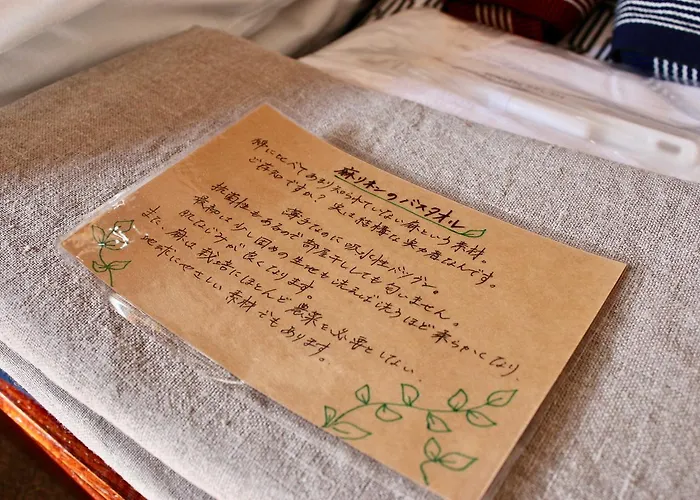 麻リネンのバスタオル
綿に比べてあまり知られていない麻という素材。
ご存知ですか？実は結構な実力者なんです。
薄手なのに吸水性バツグン。
抗菌性もあるので部屋干ししても匂いません。
最初は少し固めの生地も洗えば洗うほど柔らかくなり、
肌なじみが良くなります。
また、麻は栽培にほとんど農薬を必要としない、
地球にやさしい素材でもあります。